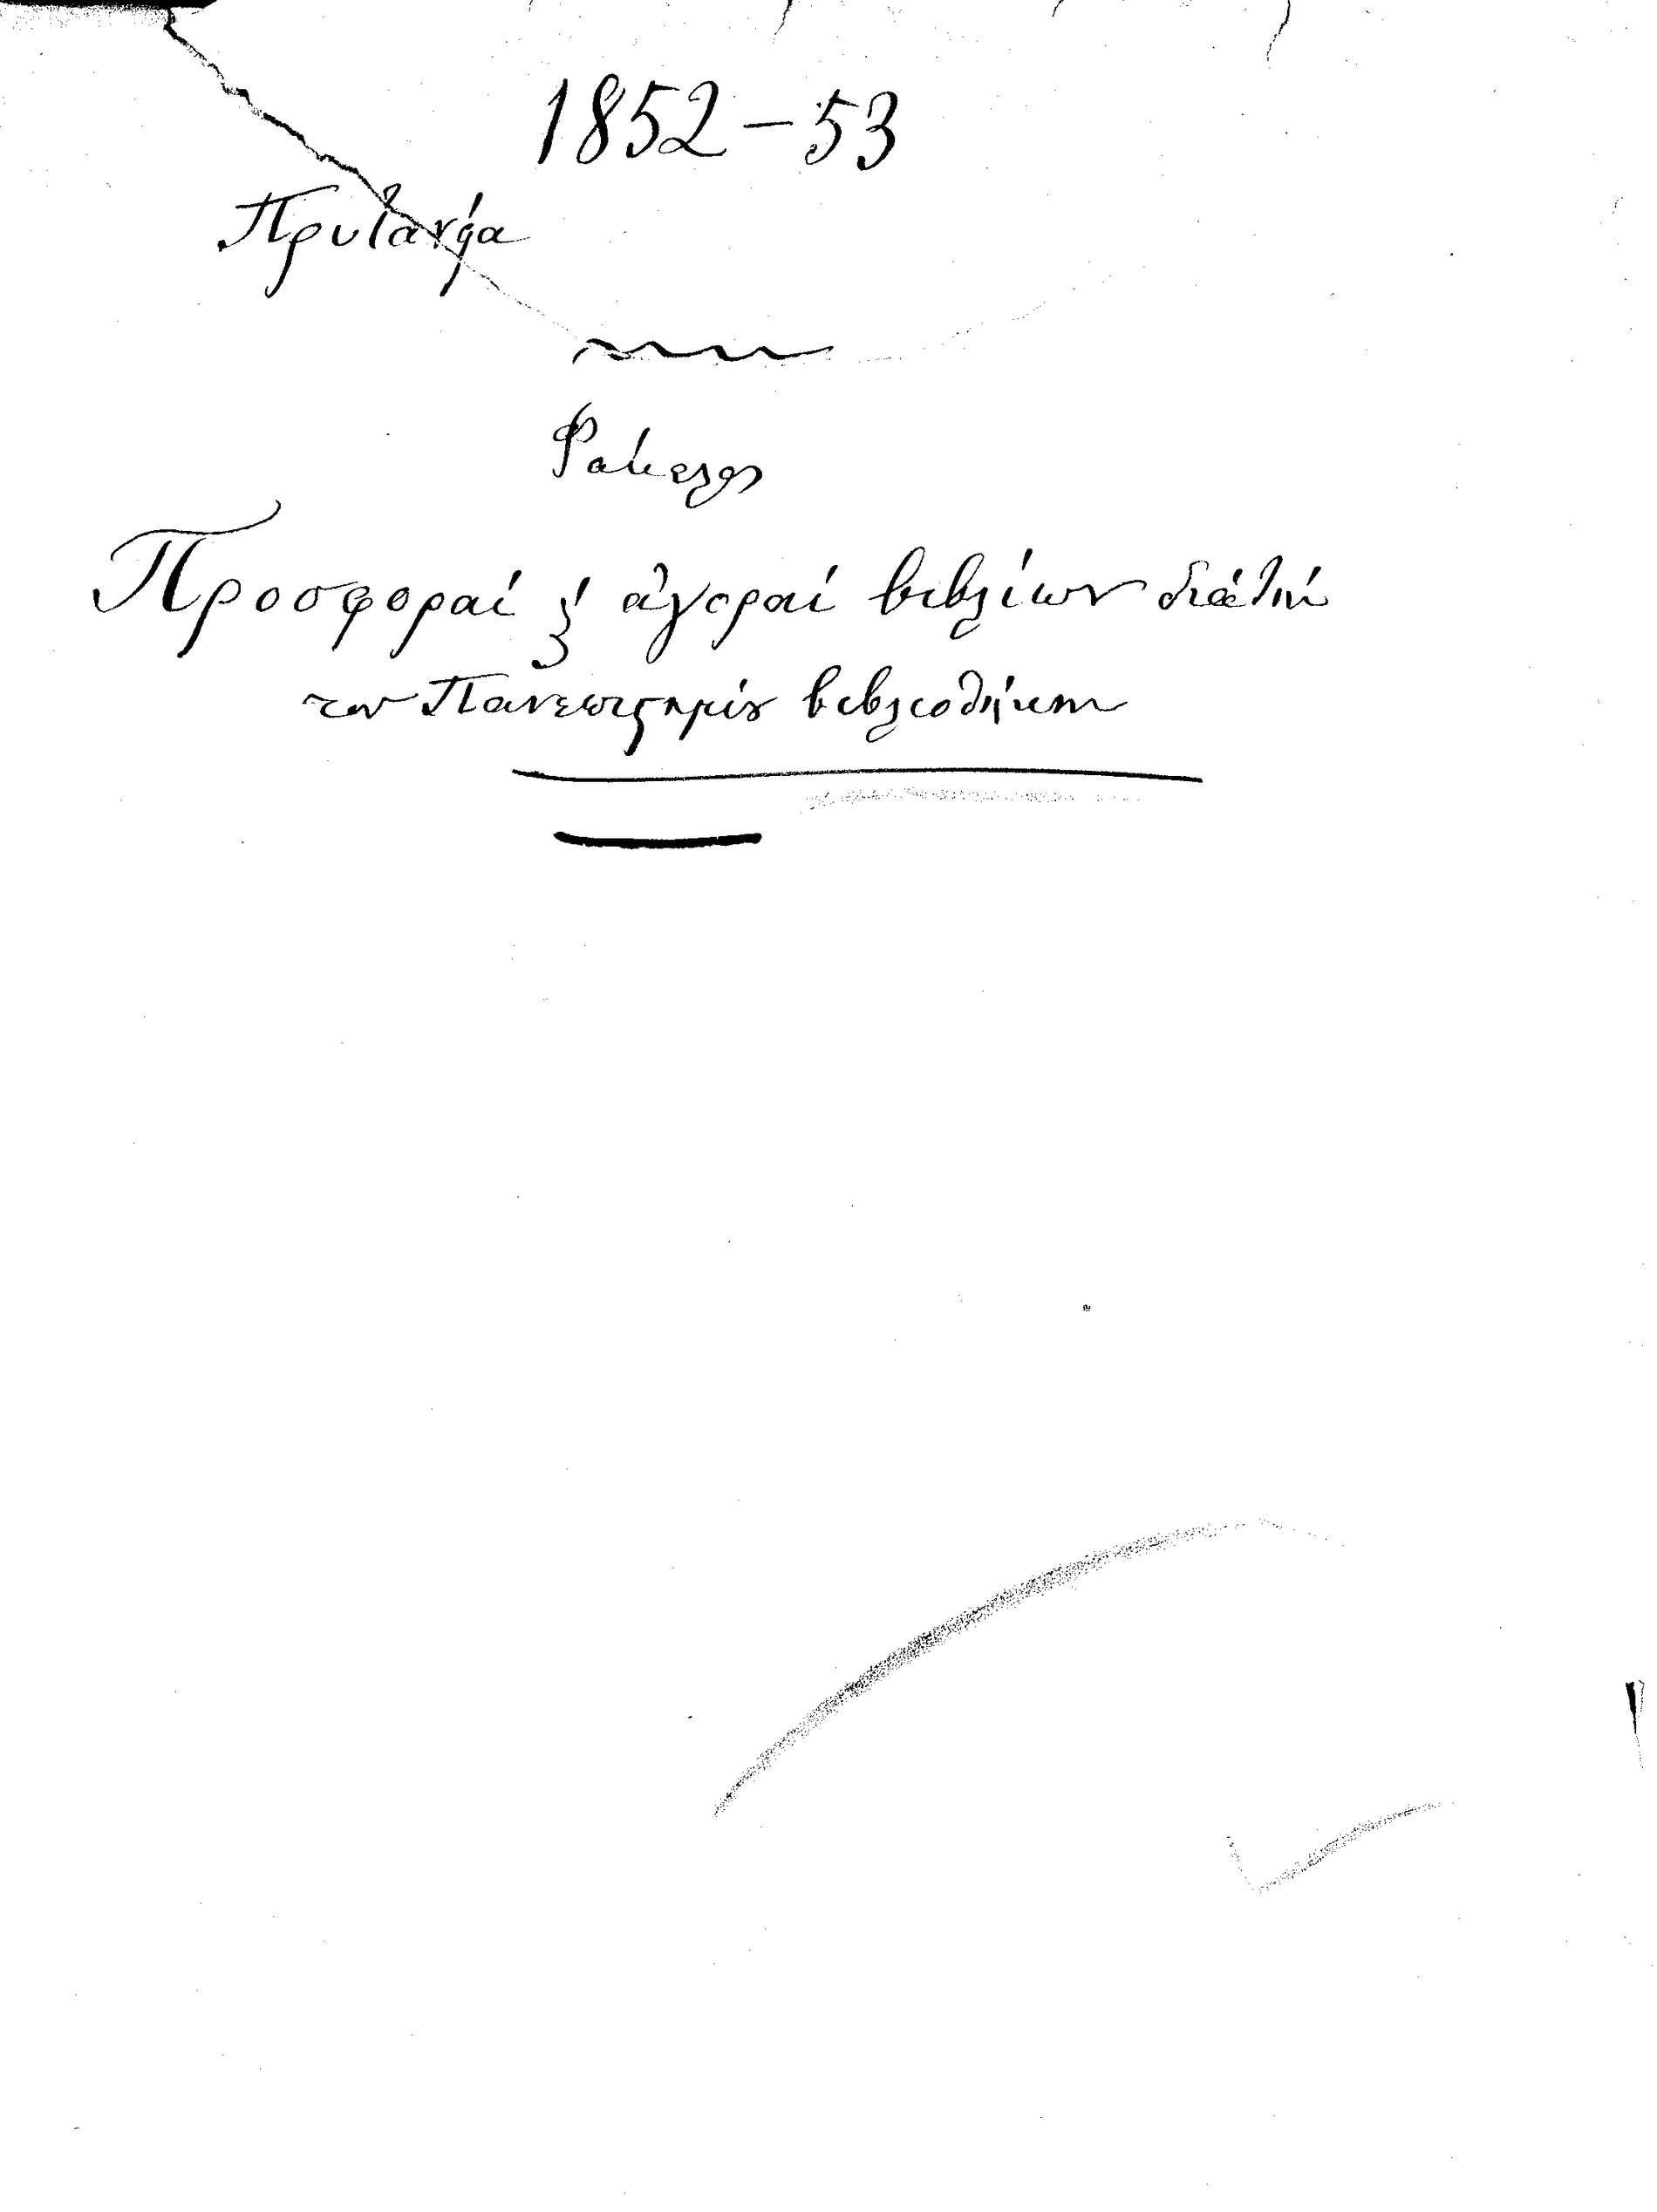 1852-53
Πρυτανεία
Φάκελος
Προσφοραί ϗ ἀγοραί βιβλίων διά τήν
του Πανεπιϛημίȣ βιβλιοθήκην